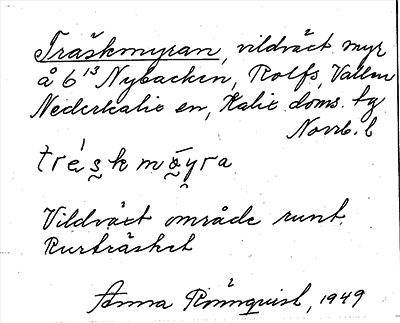 Träskmyran, vildväxt myr
å 6¹³ Nybacken, Rolfs, Vallen
Nederkalix en, Kalix doms. tg
Norrb. l
tré̀skmy̆ra
Vildväxt område runt
Rurträsket
Anna Rönnquist, 1949